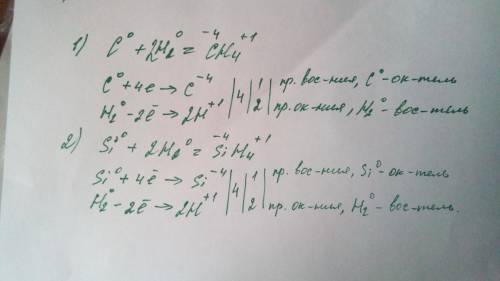 1) C⁰ + 2H₂⁰ = C⁻⁴H₄⁺¹
C⁰ + 4e → C⁻⁴ | 4 | 1 | пр. вос-ния, C⁰ - ок-тель
H₂⁰ - 2ē → 2H⁺¹ | 2 | пр. ок-ния, H₂⁰ - вос-тель
2) Si⁰ + 2H₂⁰ = Si⁻⁴H₄⁺¹
Si⁰ + 4ē → Si⁻⁴ | 4 | 1 | пр. вос-ния, Si⁰ - ок-тель
H₂⁰ - 2ē → 2H⁺¹ | 2 | пр. ок-ния, H₂⁰ - вос-тель.